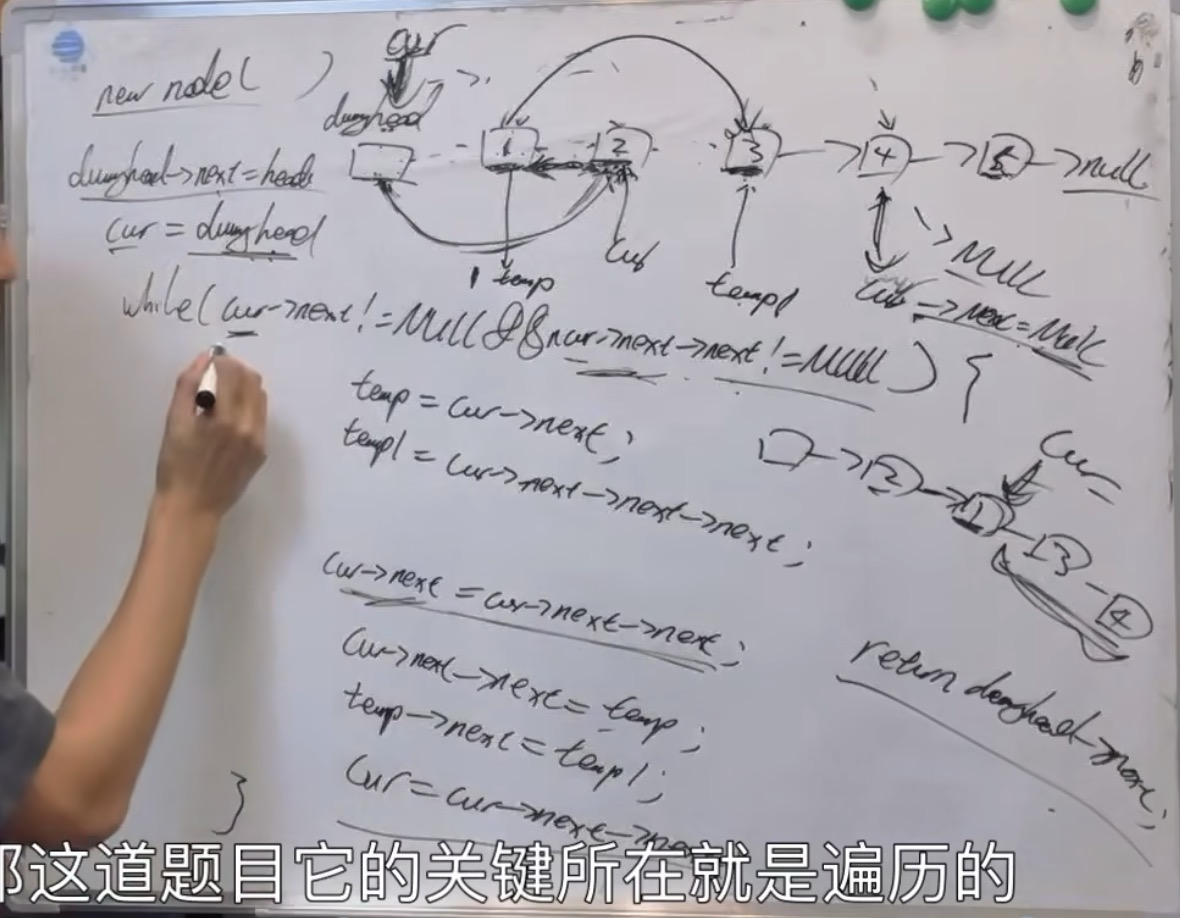 new node( )
cur
dumyhead
1 2 3 -> 4 -> 5 -> null
dumyhead->next=head
cur = dumyhead
1 temp
cur
temp1
NULL
cur->next=NULL
while(cur->next!=NULL&&cur->next->next!=NULL){
temp=cur->next;
temp1=cur->next->next->next;
cur
->2->1-3-4
cur->next=cur->next->next;
cur->next->next=temp;
temp->next=temp1;
cur=cur->next->next
return dumyhead->next;
}
那这道题目它的关键所在就是遍历的